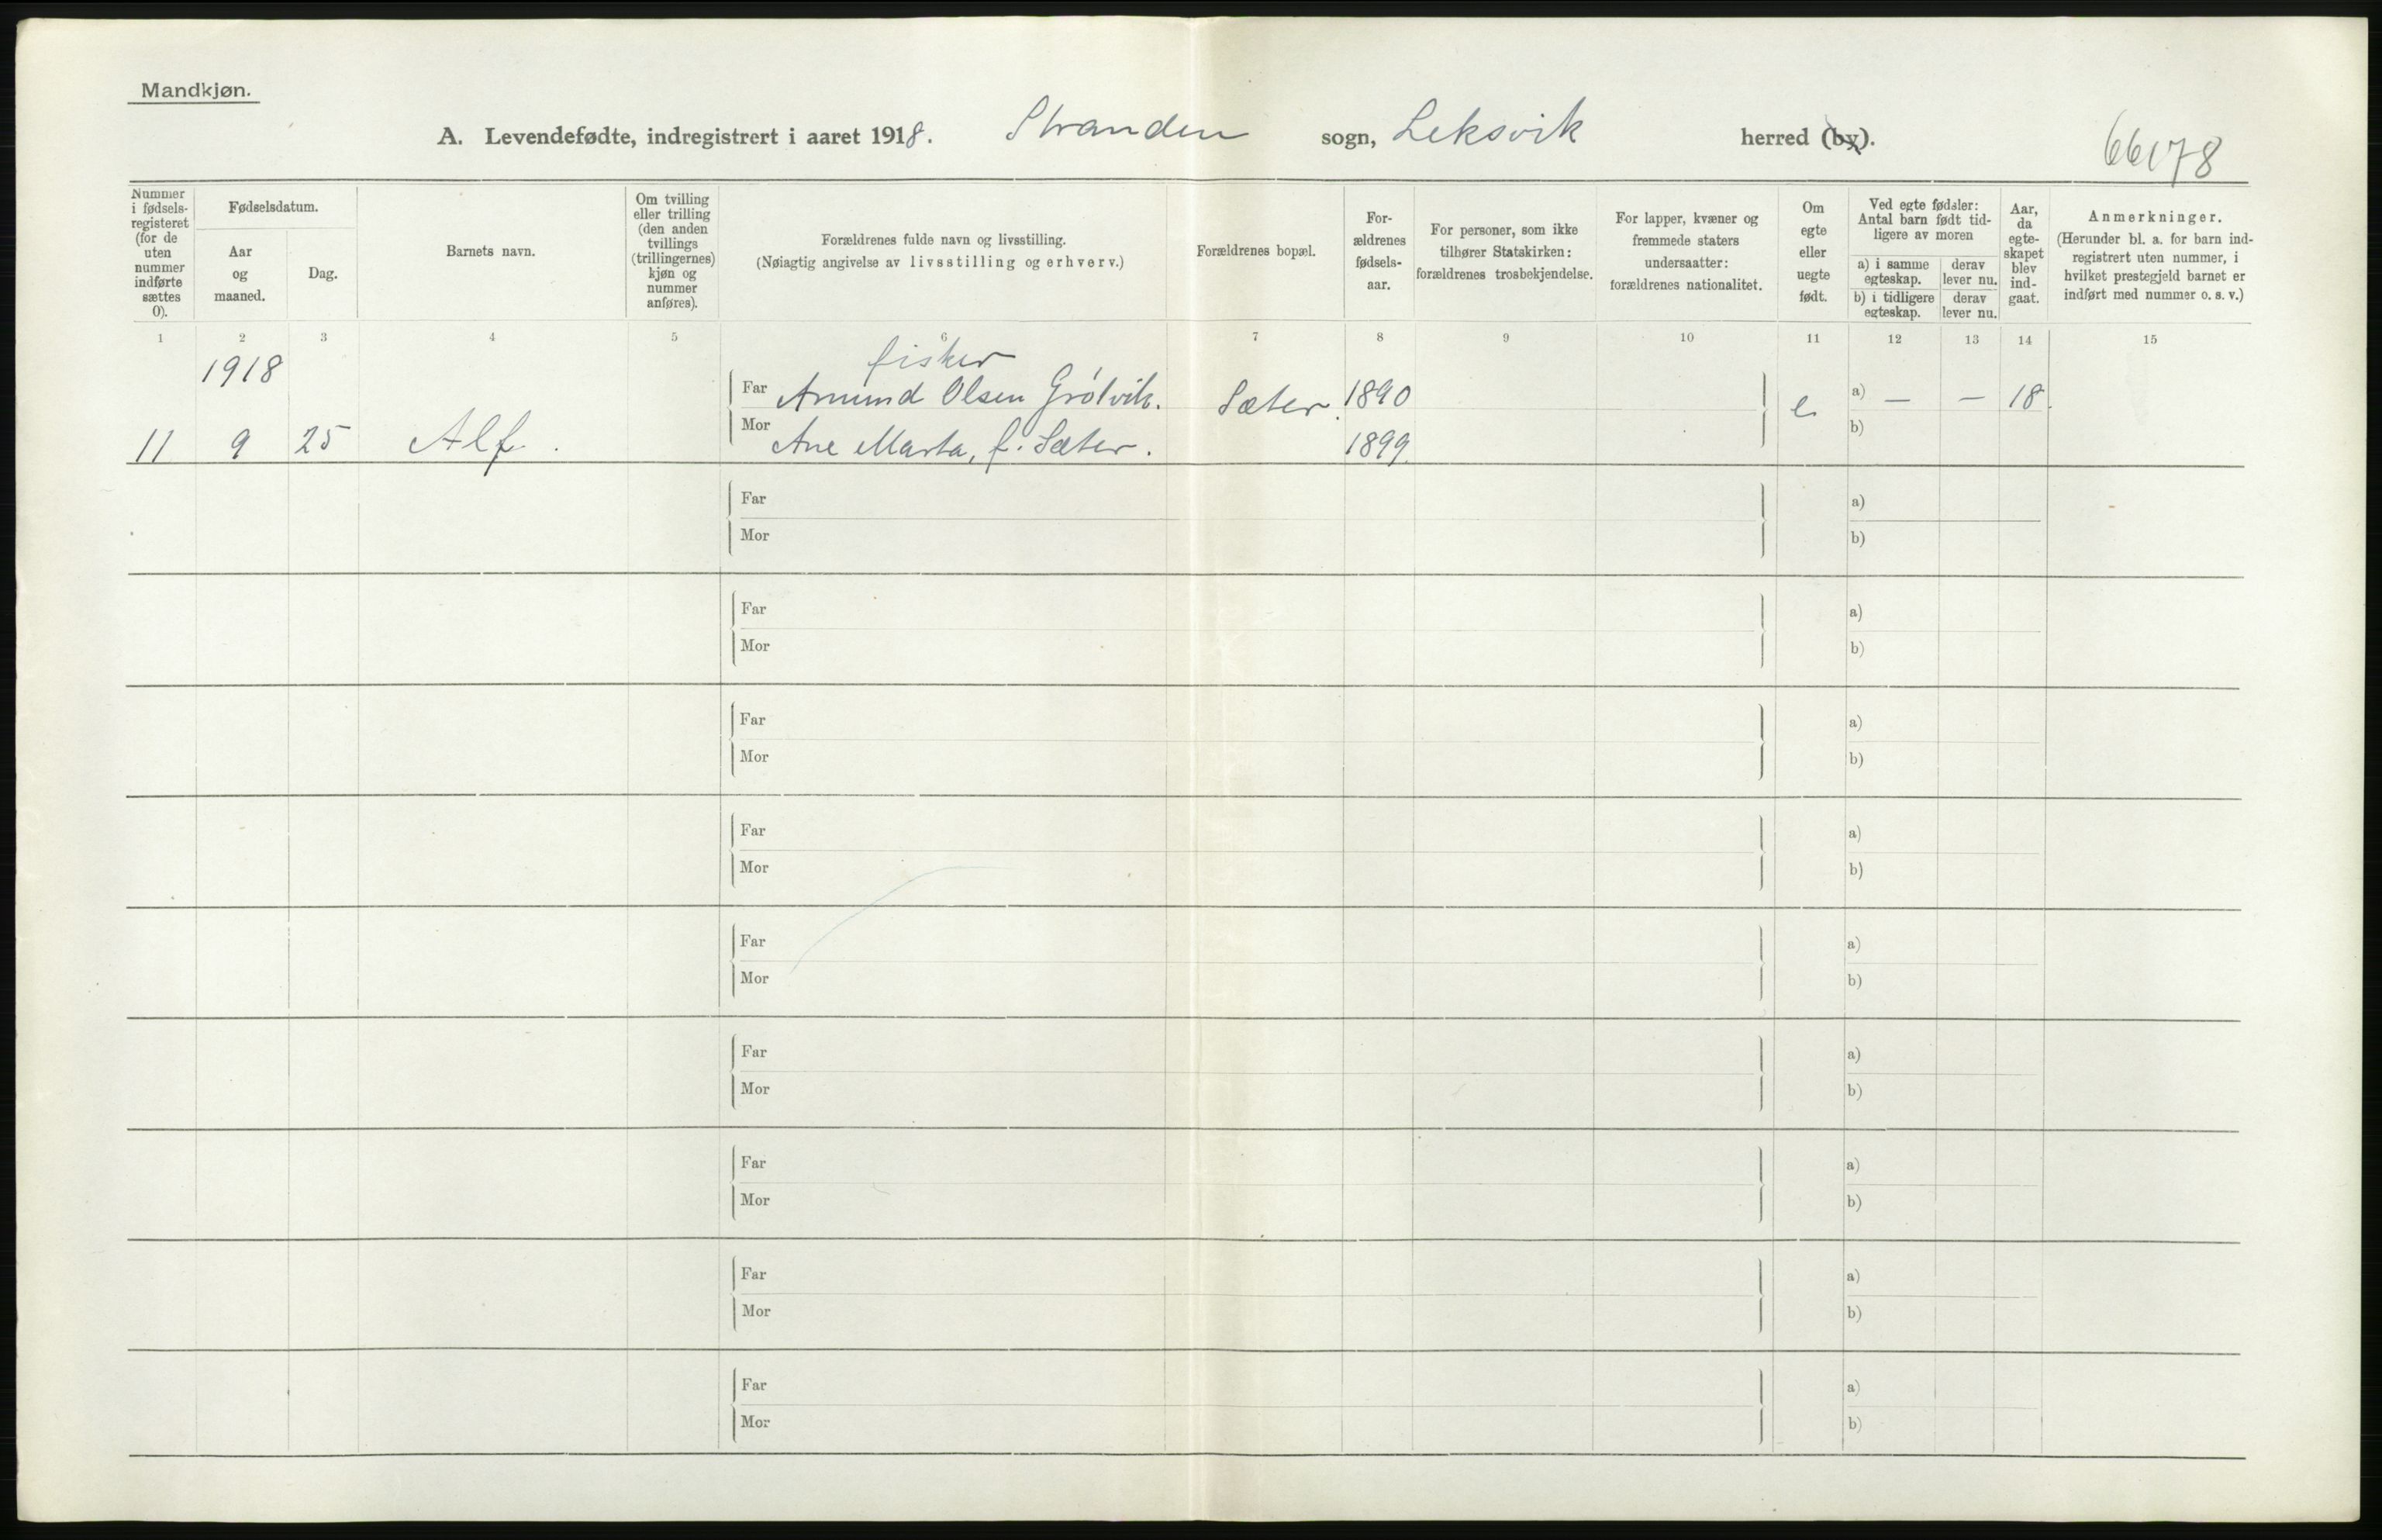 Mandkjøn.
A. Levendefødte, indregistrert i aaret 1918. Stranden sogn, Leksvik herred (by).
66178
Nummer i fødsels-registeret (for de uten nummer indførte sættes 0).
Fødselsdatum.
Aar og maaned.
Dag.
Barnets navn.
Om tvilling eller trilling (den anden tvillings (trillingernes) kjøn og nummer anføres).
Forældrenes fulde navn og livsstilling.
(Nøiagtig angivelse av livsstilling og erhverv.)
Forældrenes bopæl.
For-ældrenes fødsels-aar.
For personer, som ikke tilhører Statskirken: forældrenes trosbekjendelse.
For lapper, kvæner og fremmede staters undersaatter: forældrenes nationalitet.
Om egte eller uegte født.
Ved egte fødsler: Antal barn født tid-ligere av moren
a) i samme egteskap.
derav lever nu.
b) i tidligere egteskap.
derav lever nu.
Aar, da egte-skapet blev ind-gaat.
Anmerkninger.
(Herunder bl. a. for barn ind-registrert uten nummer, i hvilket prestegjeld barnet er indført med nummer o. s. v.)
1 2 3 4 5 6 7 8 9 10 11 12 13 14 15
1918 fisker
Far Amund Olsen Grötvik. Sæter. 1890 e. a) — — 18.
11 9 25 Alf. Mor Ane Marta, f. Sæter. 1899. b)
Far a)
Mor b)
Far a)
Mor b)
Far a)
Mor b)
Far a)
Mor b)
Far a)
Mor b)
Far a)
Mor b)
Far a)
Mor b)
Far a)
Mor b)
Far a)
Mor b)